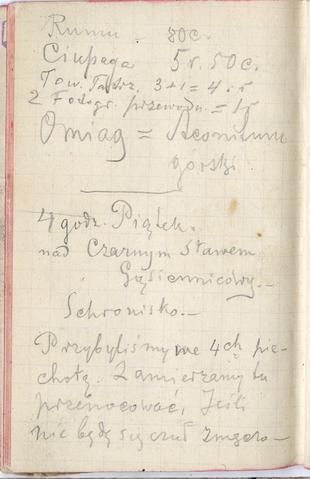 Rumu - 80c.
Ciupaga 5r. 50c.
Tow. Tatrz. 3+1=4.r
2 Fotogr. przewodn. = 1r
Omiag = Aconitum
gorski

4 godz. Piątek.
nad Czarnym Stawem
Gąsiennicowy.-
Schronisko.-
Przybyliśmy we 4ch pie-
chotą. Zamierzamy tu
przenocować, Jeśli
nic będę się czuł zmęczo-